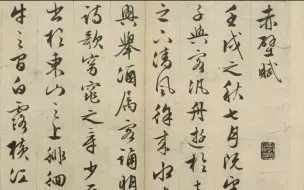 赤壁賦
壬戌之秋七月既望
子與客汎舟遊於
之下清風徐來水
興舉酒屬客誦明
詩歌窈窕之章少
出於東山之上徘徊
牛之間白露橫江